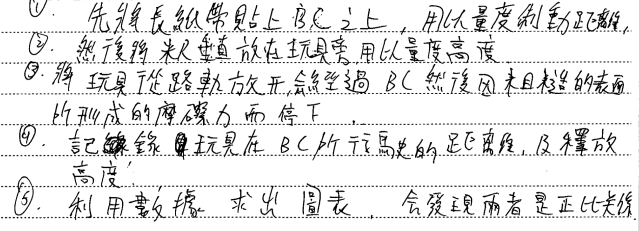 ①. 先將長紙帶貼上 BC 之上,用以量度制動距離,
②. 然後將米尺豎放在玩具旁用以量度高度
③. 將玩具從路軌放開,會經過 BC 然後因粗糙的表面
所形成的摩擦力而停下.
④. 記錄玩具在 BC 所行駛的距離,及釋放
高度.
⑤. 利用數據 求出 圖表,會發現兩者是正比关係